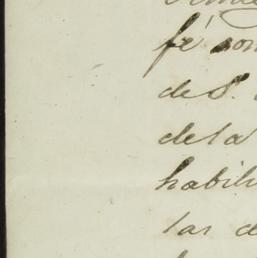 fé con
de S.
de la
habili
las de